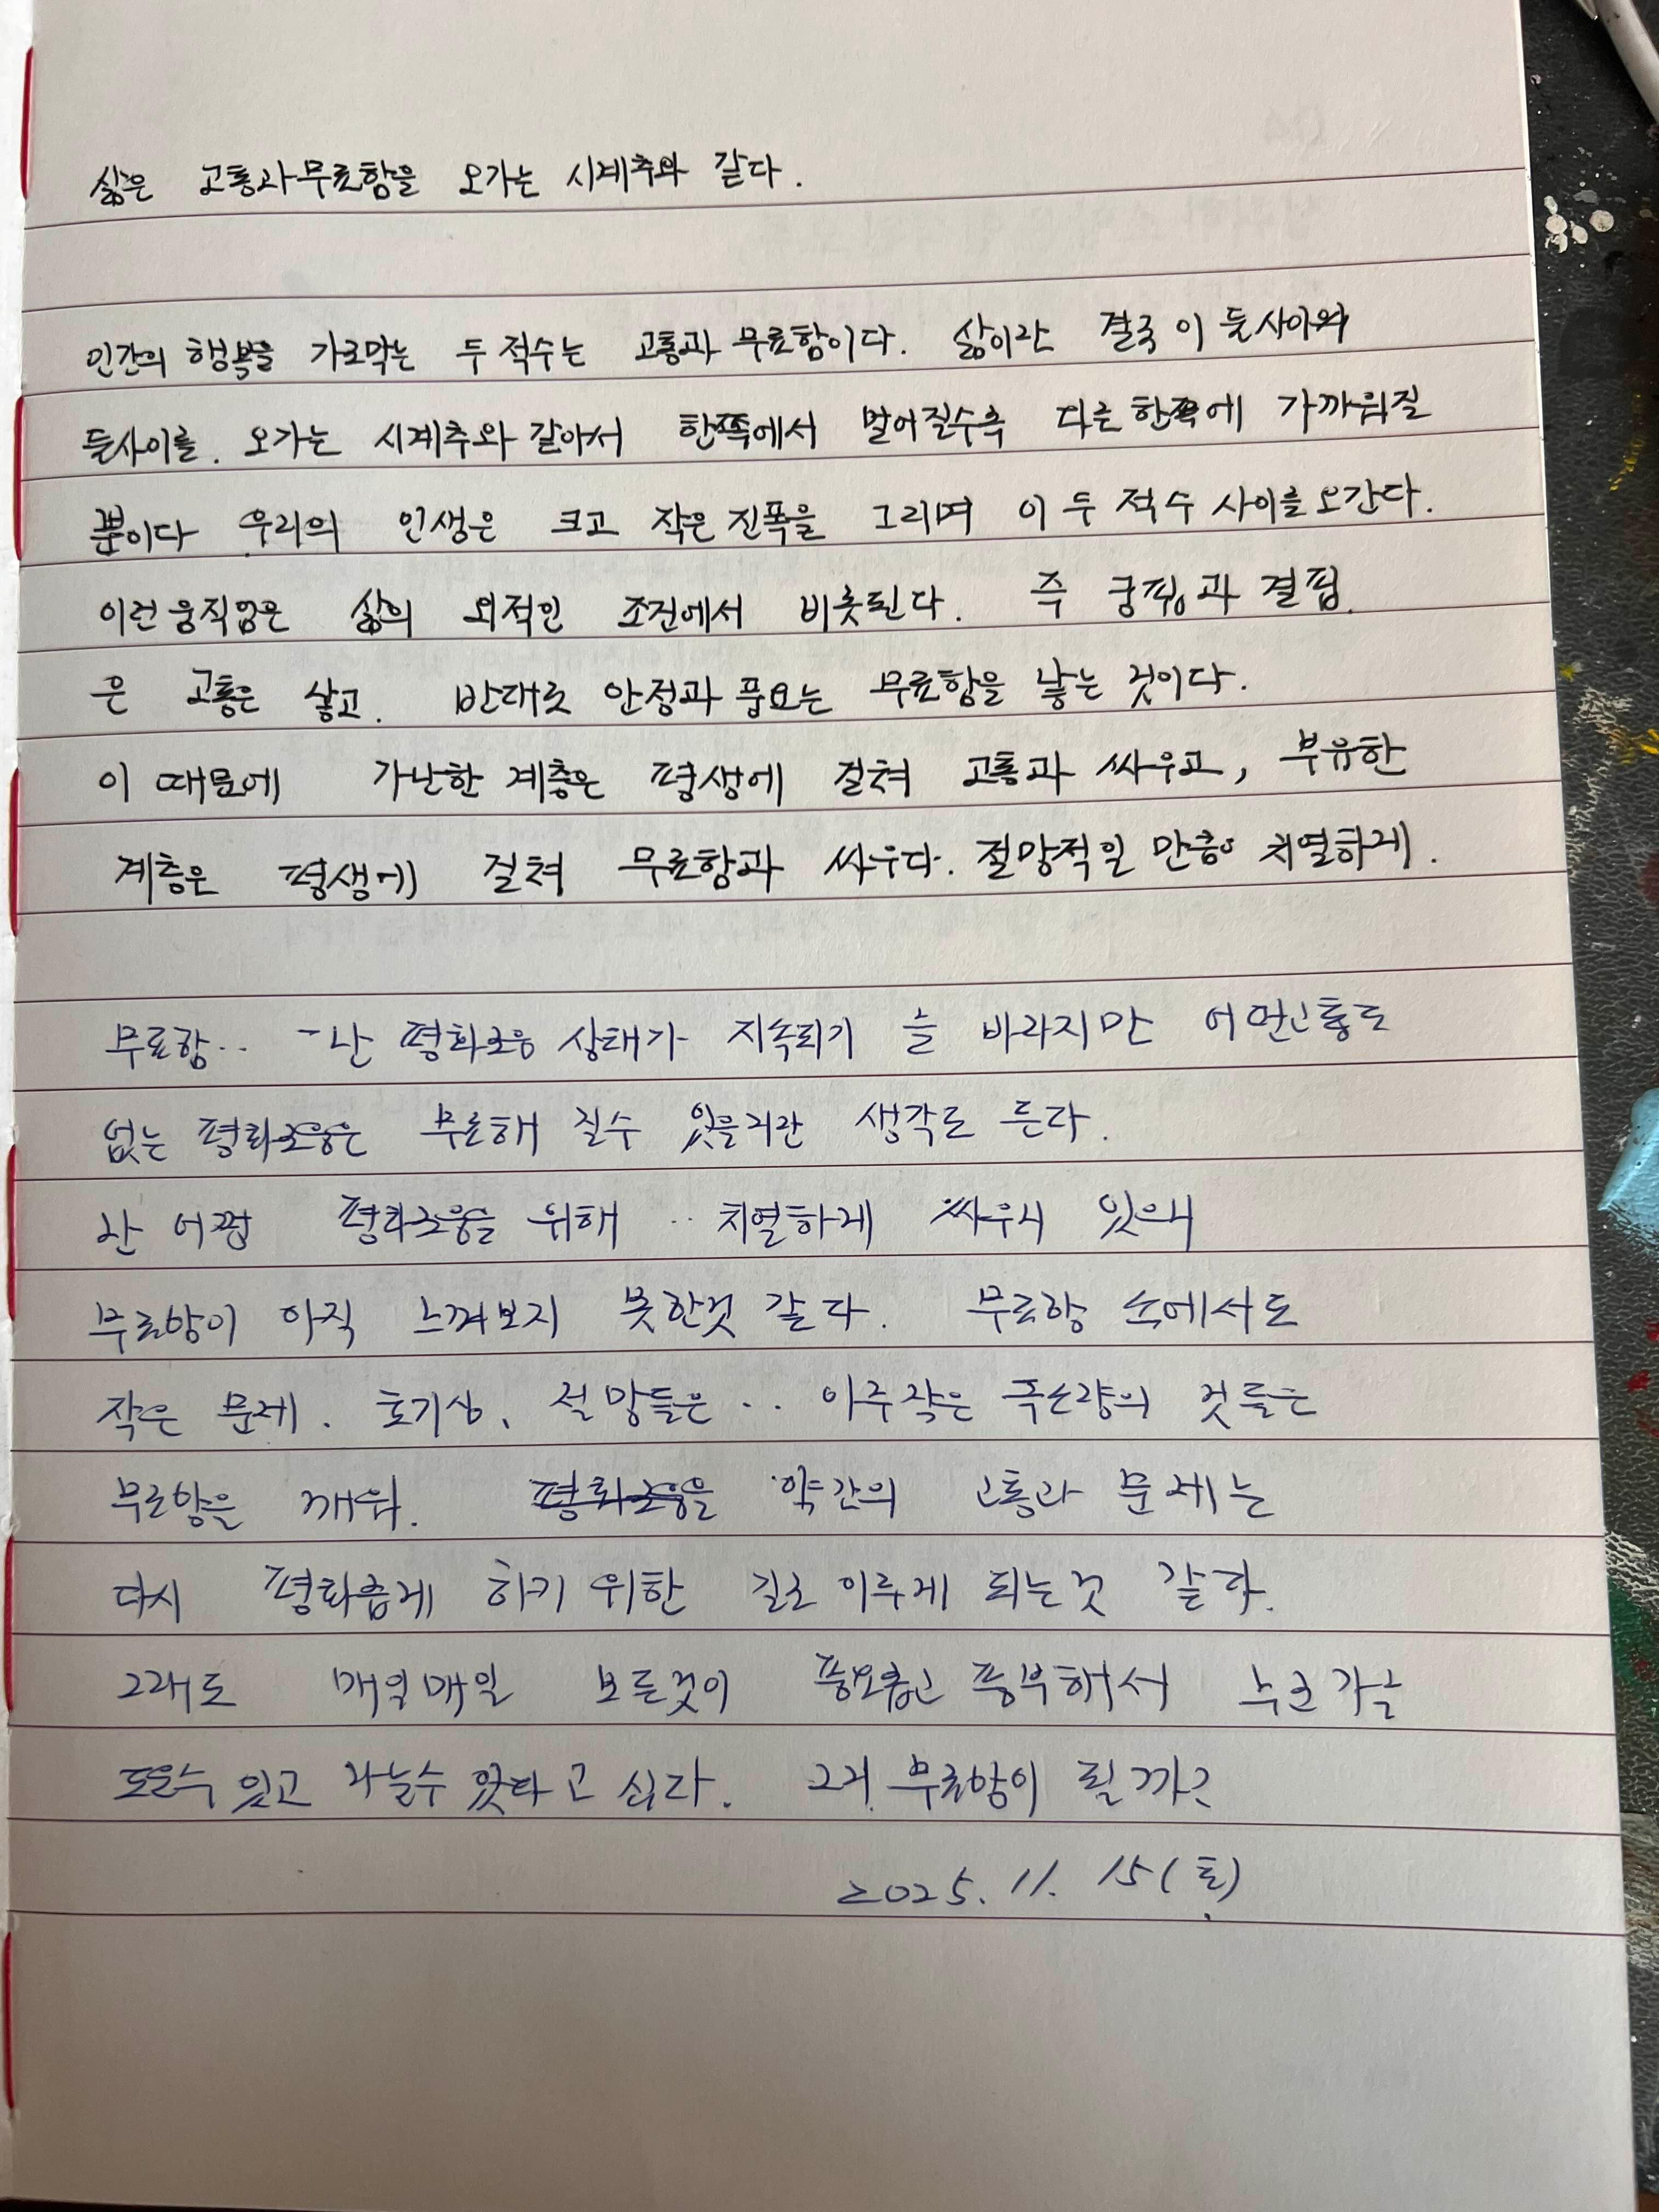 삶은 고통과 무료함을 오가는 시계추와 같다.
인간의 행복을 가로막는 두 적수는 고통과 무료함이다. 삶이란 결국 이 둘사이와
둘사이를. 오가는 시계추와 같아서 한쪽에서 멀어질수록 다른 한쪽에 가까워질
뿐이다 우리의 인생은 크고 작은 진폭을 그리며 이 두 적수 사이를 오간다.
이런 움직임은 삶의 외적인 조건에서 비롯된다. 즉 궁핍과 결핍
은 고통은 낳고. 반대로 안정과 풍요는 무료함을 낳는 것이다.
이 때문에 가난한 계층은 평생에 걸쳐 고통과 싸우고, 부유한
계층은 평생에 걸쳐 무료함과 싸우다. 절망적일 만큼 치열하게.
무료함.. 난 평화로움 상태가 지속되기 늘 바라지만 어떤고통도
없는 평화로움은 무료해 질수 있을거란 생각도 든다.
난 어쩜 평화로움을 위해 .. 치열하게 싸우니 있으니
무료함이 아직 느껴보지 못한것 같다. 무료함 속에서도
작은 문제. 호기심, 절망들은.. 아주 작은 의 것들은
무료함을 깨워. 평화로움을 약간의 고통과 문제는
다시 평화롭게 하기 위한 길로 이루게 되는것 같다.
그래도 매일매일 모든것이 풍요롭고 풍부해서 누군가를
도울수 있고 나눌수 있다고 싶다. 그게 무료함이 될까?
2025. 11. 15 (토)